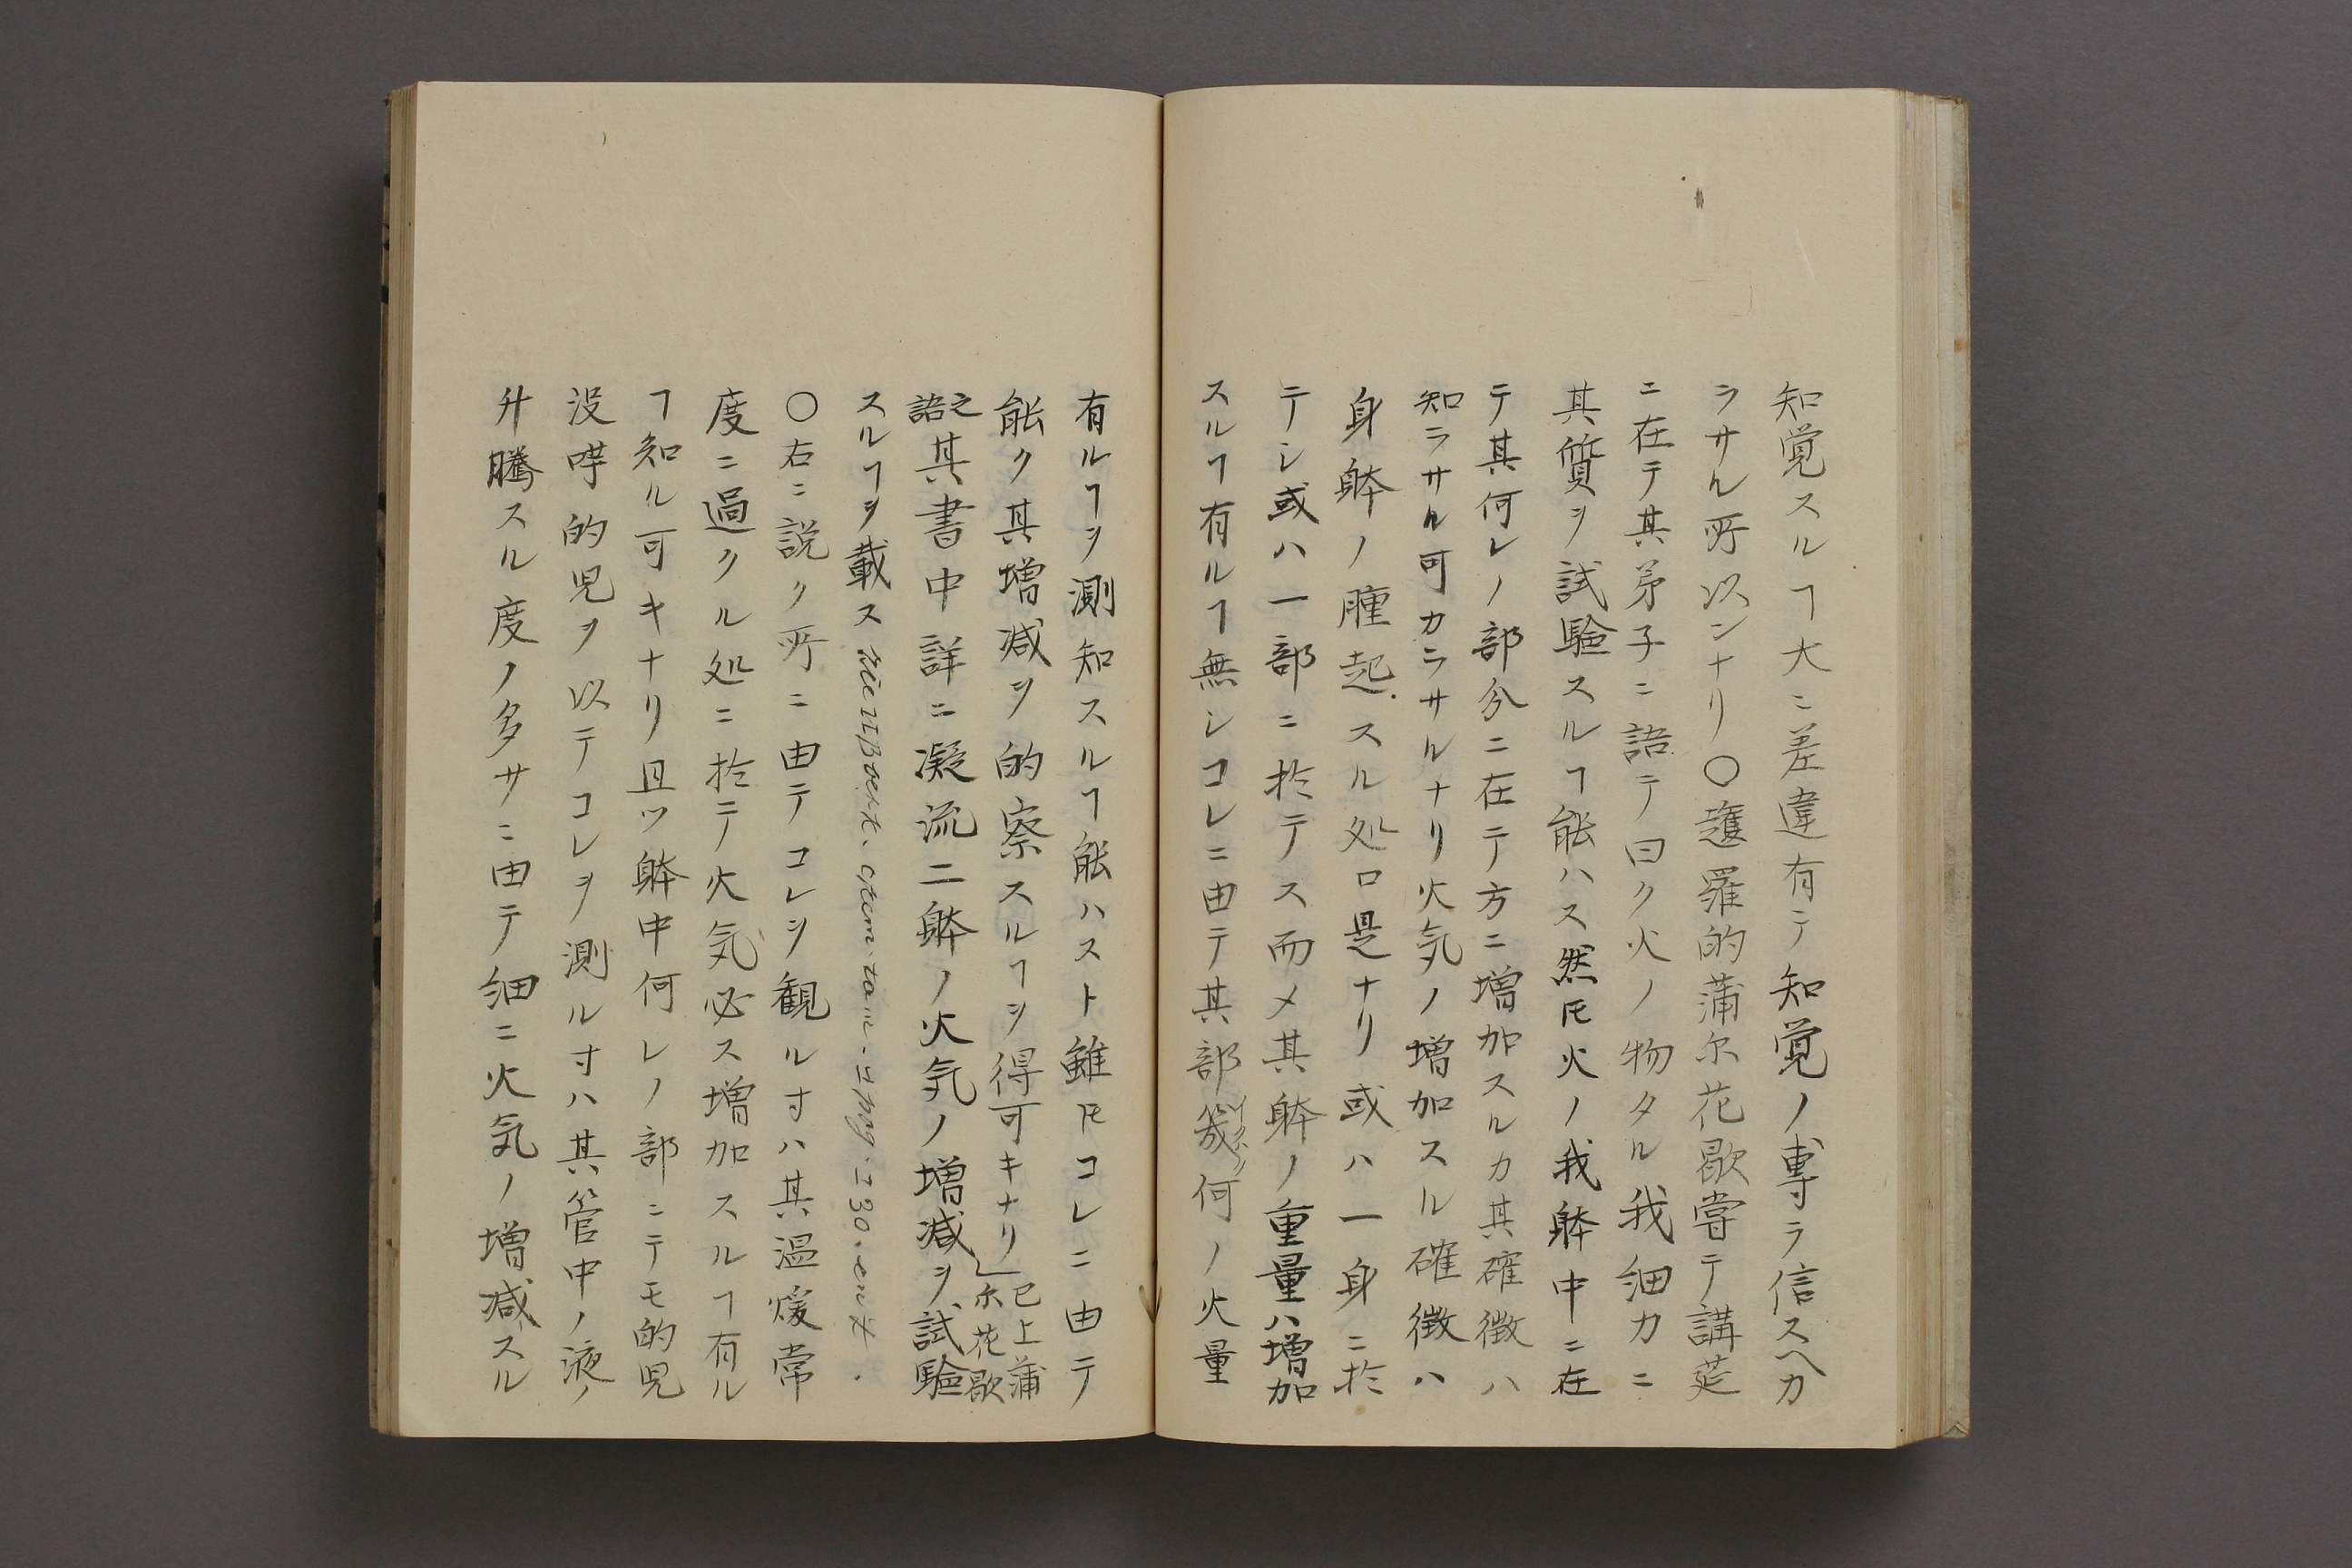 知覚スルヿ大ニ差違有テ知覚ノ専ラ信スヘカ
ラサル所以ンナリ〇護羅的蒲尓花歇嘗テ講莚
ニ在テ其弟子ニ語テ曰ク火ノ物タル我細カニ
其質ヲ試験スルヿ能ハス然𪜈火ノ我躰中ニ在
テ其何レノ部分ニ在テ方ニ増加スルカ其確徴ハ
知ラサル可カラサルナリ火気ノ増加スル確徴ハ
身躰ノ腫起スル処ロ是ナリ或ハ一身ニ於
テシ或ハ一部ニ於テス而〆其躰ノ重量ハ増加
スルヿ有ルヿ無シコレニ由テ其部幾何ノ火量
有ルヿヲ測知スルヿ能ハスト雖𪜈コレニ由テ
能ク其増減ヲ的察スルヿヲ得可キナリ」已上蒲尓花歇
之語其書中詳ニ凝流二躰ノ火気ノ増減ヲ試験
スルヿヲ載ス
〇右ニ説ク所ニ由テコレヲ観ル寸ハ其温煖常
度ニ過クル処ニ於テ火気必ス増加スルヿ有ル
ヿ知ル可キナリ且ツ躰中何レノ部ニテモ的児
没啈的児ヲ以テコレヲ測ル寸ハ其管中ノ液ノ
升騰スル度ノ多サニ由テ細ニ火気ノ増減スル